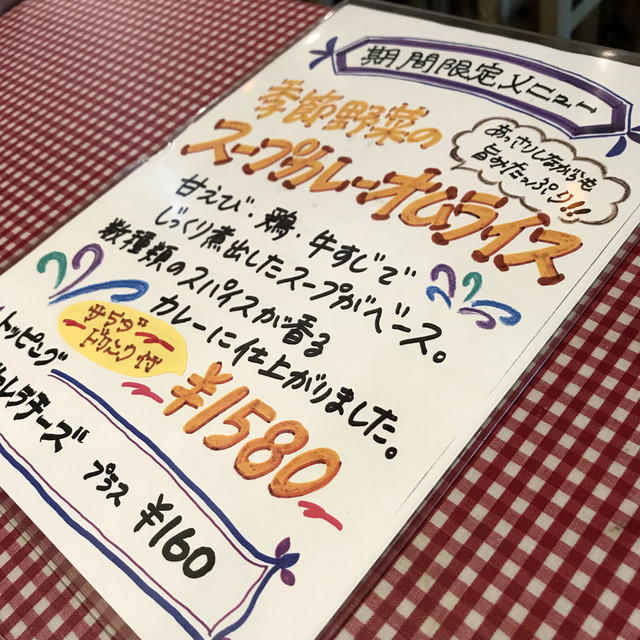 期間限定メニュー
季節野菜の
スープカレーオムライス
あっさりしながらも
旨みたっぷり!!
甘えび・鶏・牛すじで
じっくり煮出したスープがベース。
数種類のスパイスが香る
カレーに仕上がりました。
サラダ
ドリンク付
¥1580
トッピング
モッツァレラチーズ プラス ¥160